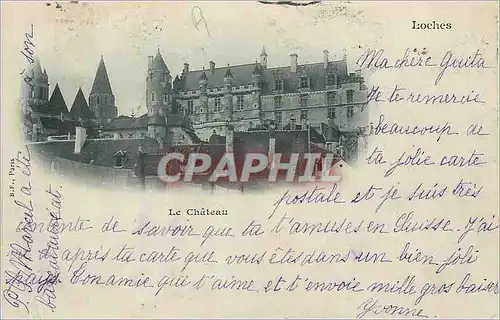 Loches
Ma chère Guita
Je te remercie
beaucoup de
ta jolie carte
postale et je suis très
contente de savoir que tu t'amuses en Suisse. J'ai
après ta carte que vous êtes dans un bien joli
pays. Bonamie qui t'aime et t'envoie mille gros baisers
Yvonne.
Le Château
B.F., Paris
CPARAMA
à son
Marcel a été
baccalauréat.